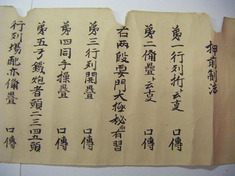 押前制法
第一行列折玄支
第二備疊玄支
右両段要門大極秘有習
第三行列開疊 口傳
第四同手操疊 口傳
第五弓鐵炮者頭二三四五頭
行列場配亦備疊 口傳